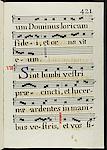 421
um Dominus loricam
fidei, et or
Sint lumbi vestri
præcincti, et lucer-
næ ardentes in mani-
bus vestris, et vos si-